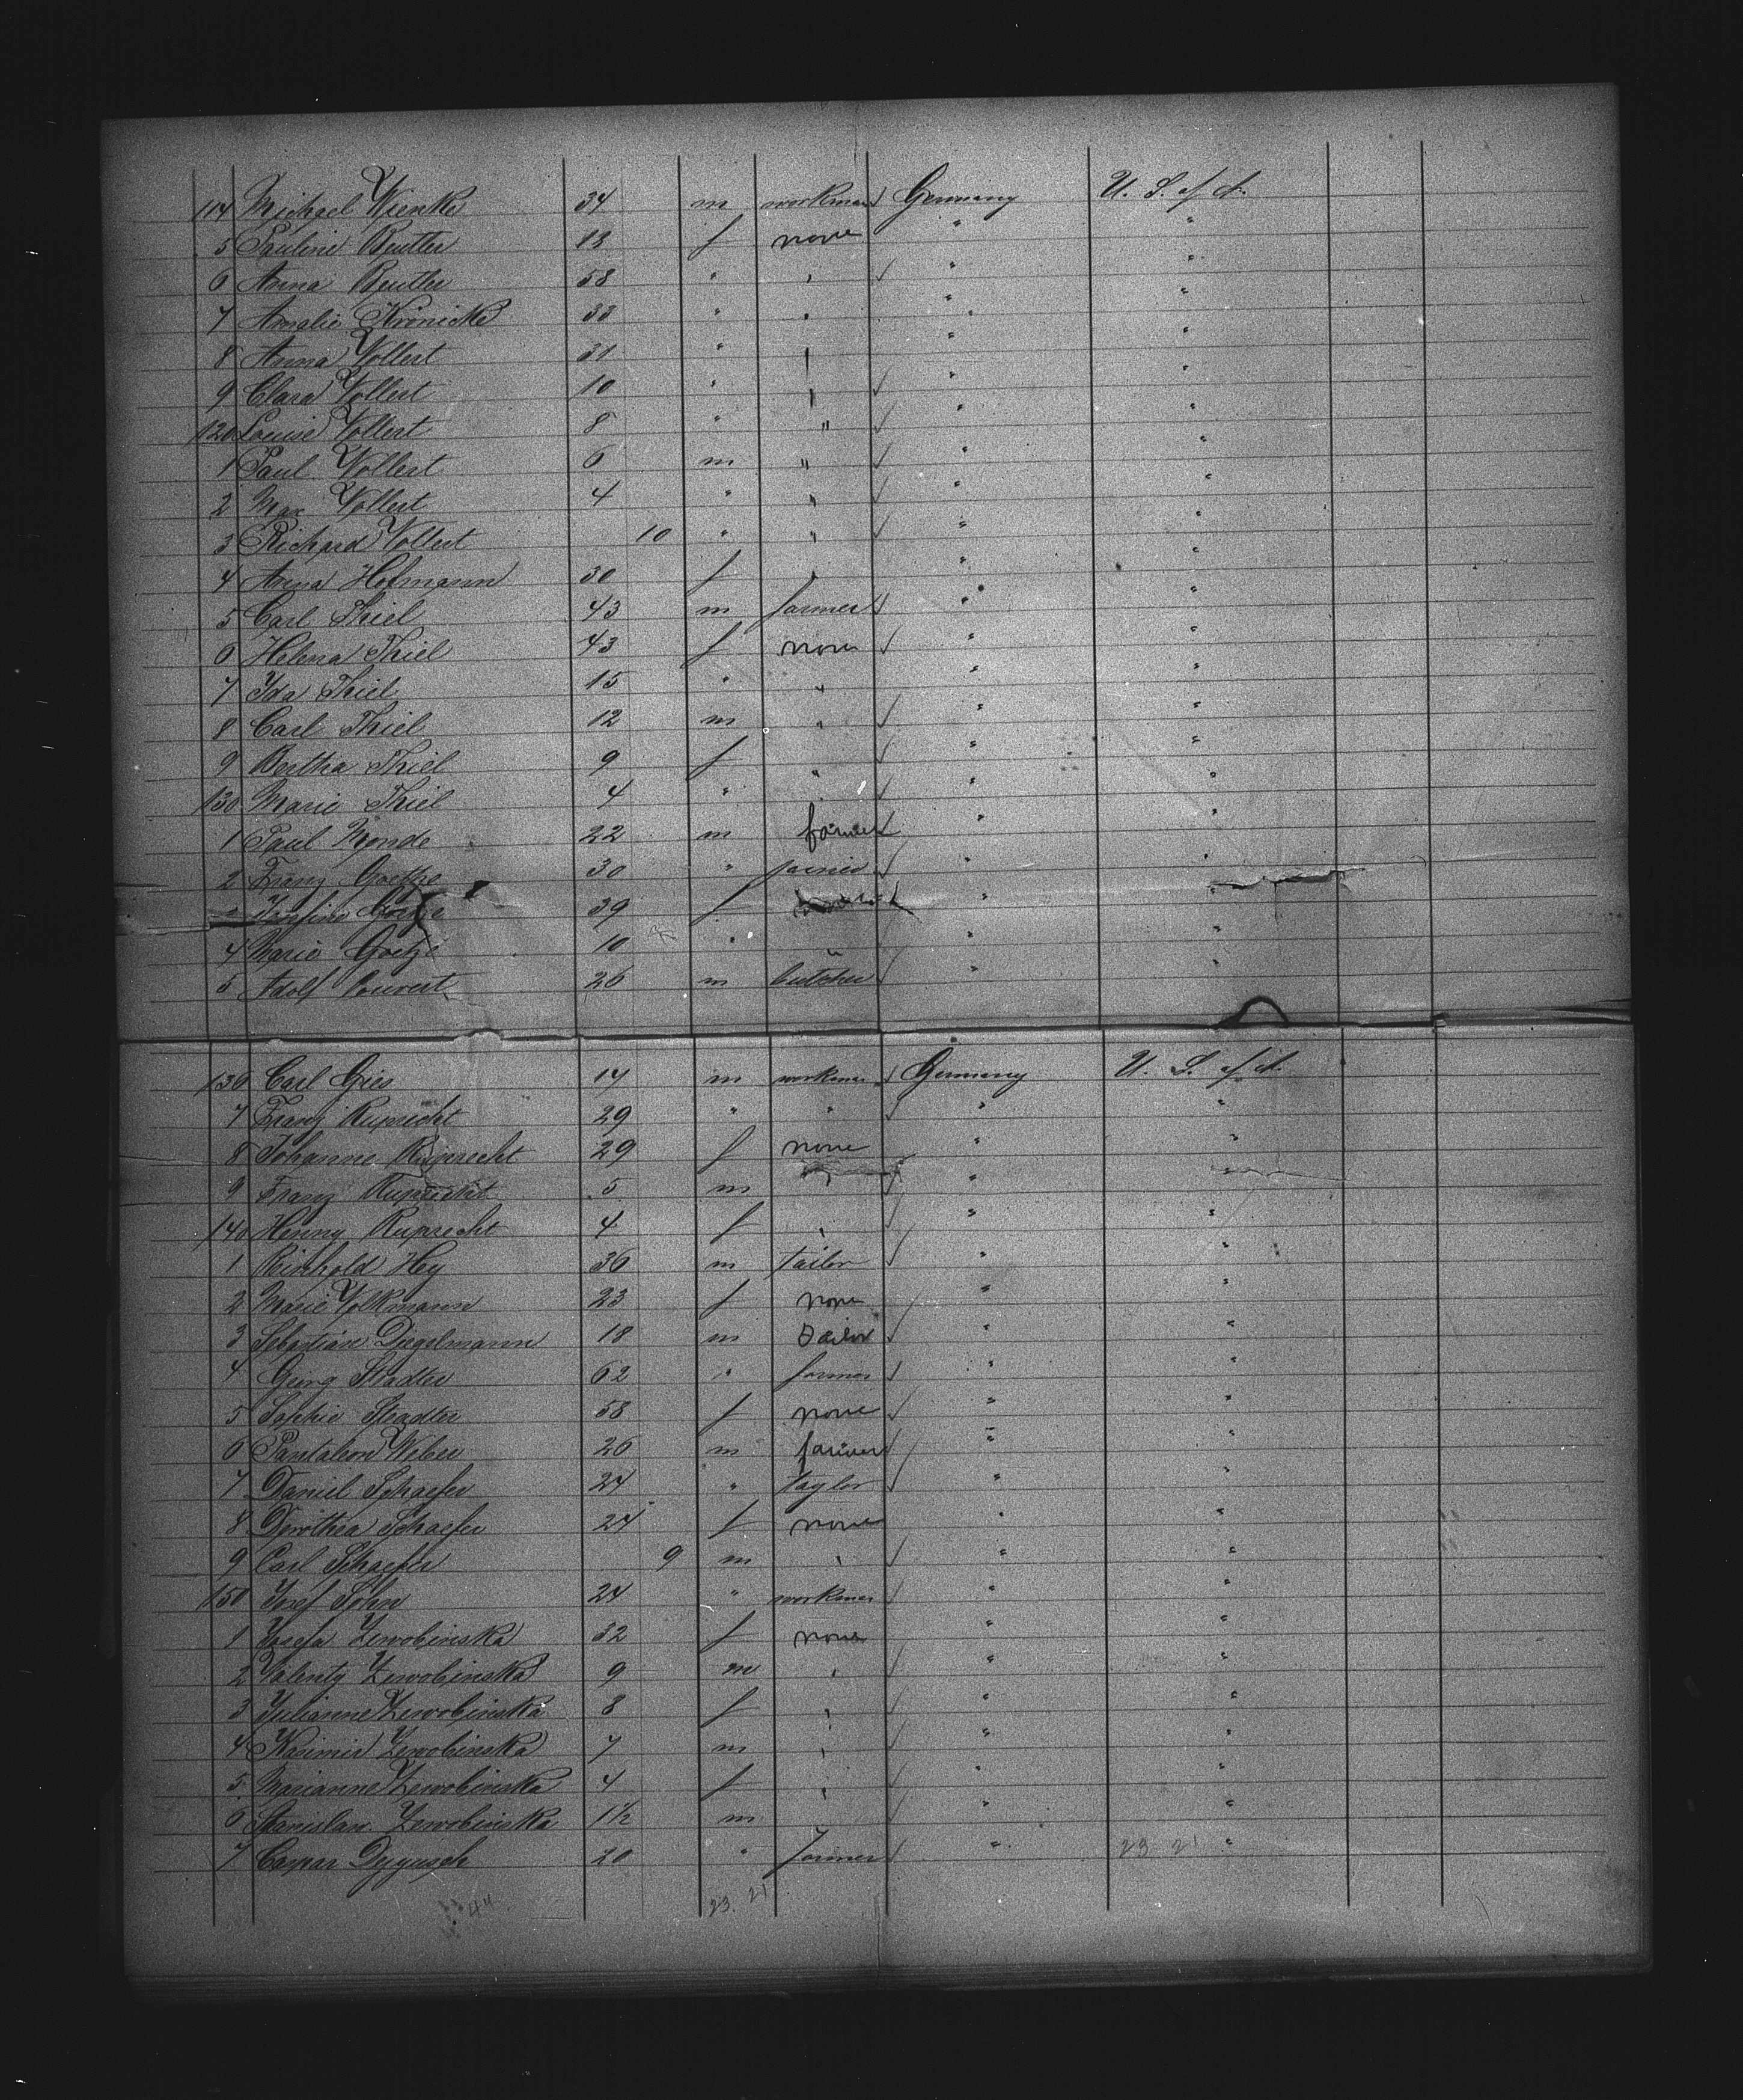 114 Michael Wienke 34 m workman Germany U. S. of A.
5 Pauline Beutler 13 f none " "
6 Anna Beutler 58 " " " "
7 Amalie Kronicke 33 " " " "
8 Anna Vollert 31 " " " "
9 Clara Vollert 10 " " " "
120 Louise Vollert 8 " " " "
1 Paul Vollert 6 m " " "
2 Max Vollert 4 " " " "
3 Richard Vollert 10 " " " "
4 Anna Hofmann 30 f " " "
5 Carl Thiel 43 m farmer " "
6 Helena Thiel 43 f none " "
7 Ida Thiel 15 " " " "
8 Carl Thiel 12 m " " "
9 Bertha Thiel 9 f " " "
130 Marie Thiel 4 " " " "
1 Paul Monde 22 m farmer " "
2 Franz Goetze 30 " farmer " "
Goetze 39 f " "
4 Marie Goetze 10 " " " "
5 Adolf 26 m butcher " "
136 Carl Gies 14 m workman Germany U. S. of A.
7 Franz Ruprecht 29 " " " "
8 Johanne Ruprecht 29 f none " "
9 Franz Ruprecht 5 m " " "
140 Henny Ruprecht 4 f " " "
1 Reinhold Hey 36 m tailor " "
2 Marie Volkmann 23 f none " "
3 Sebastian Diegelmann 18 m Tailor " "
4 Georg Stadter 62 " farmer " "
5 Sophie Stadter 58 f none " "
6 Pantaleon Weber 26 m farmer " "
7 Daniel Schaefer 24 " taylor " "
8 Dorothea Schaefer 24 f none " "
9 Carl Schaefer 9 m " " "
150 Josef Sohn 24 " workman " "
1 Josefa Zewobinska 32 f none " "
2 Valenty Zewobinska 9 m " " "
3 Julianne Zewobinska 8 f " " "
4 Kasimir Zewobinska 7 m " " "
5 Marianne Zewobinska 4 f " " "
6 Stanislaw Zewobinska 1½ m " "
7 Caspar 20 " Farmer " 23 21 "
44 23. 21